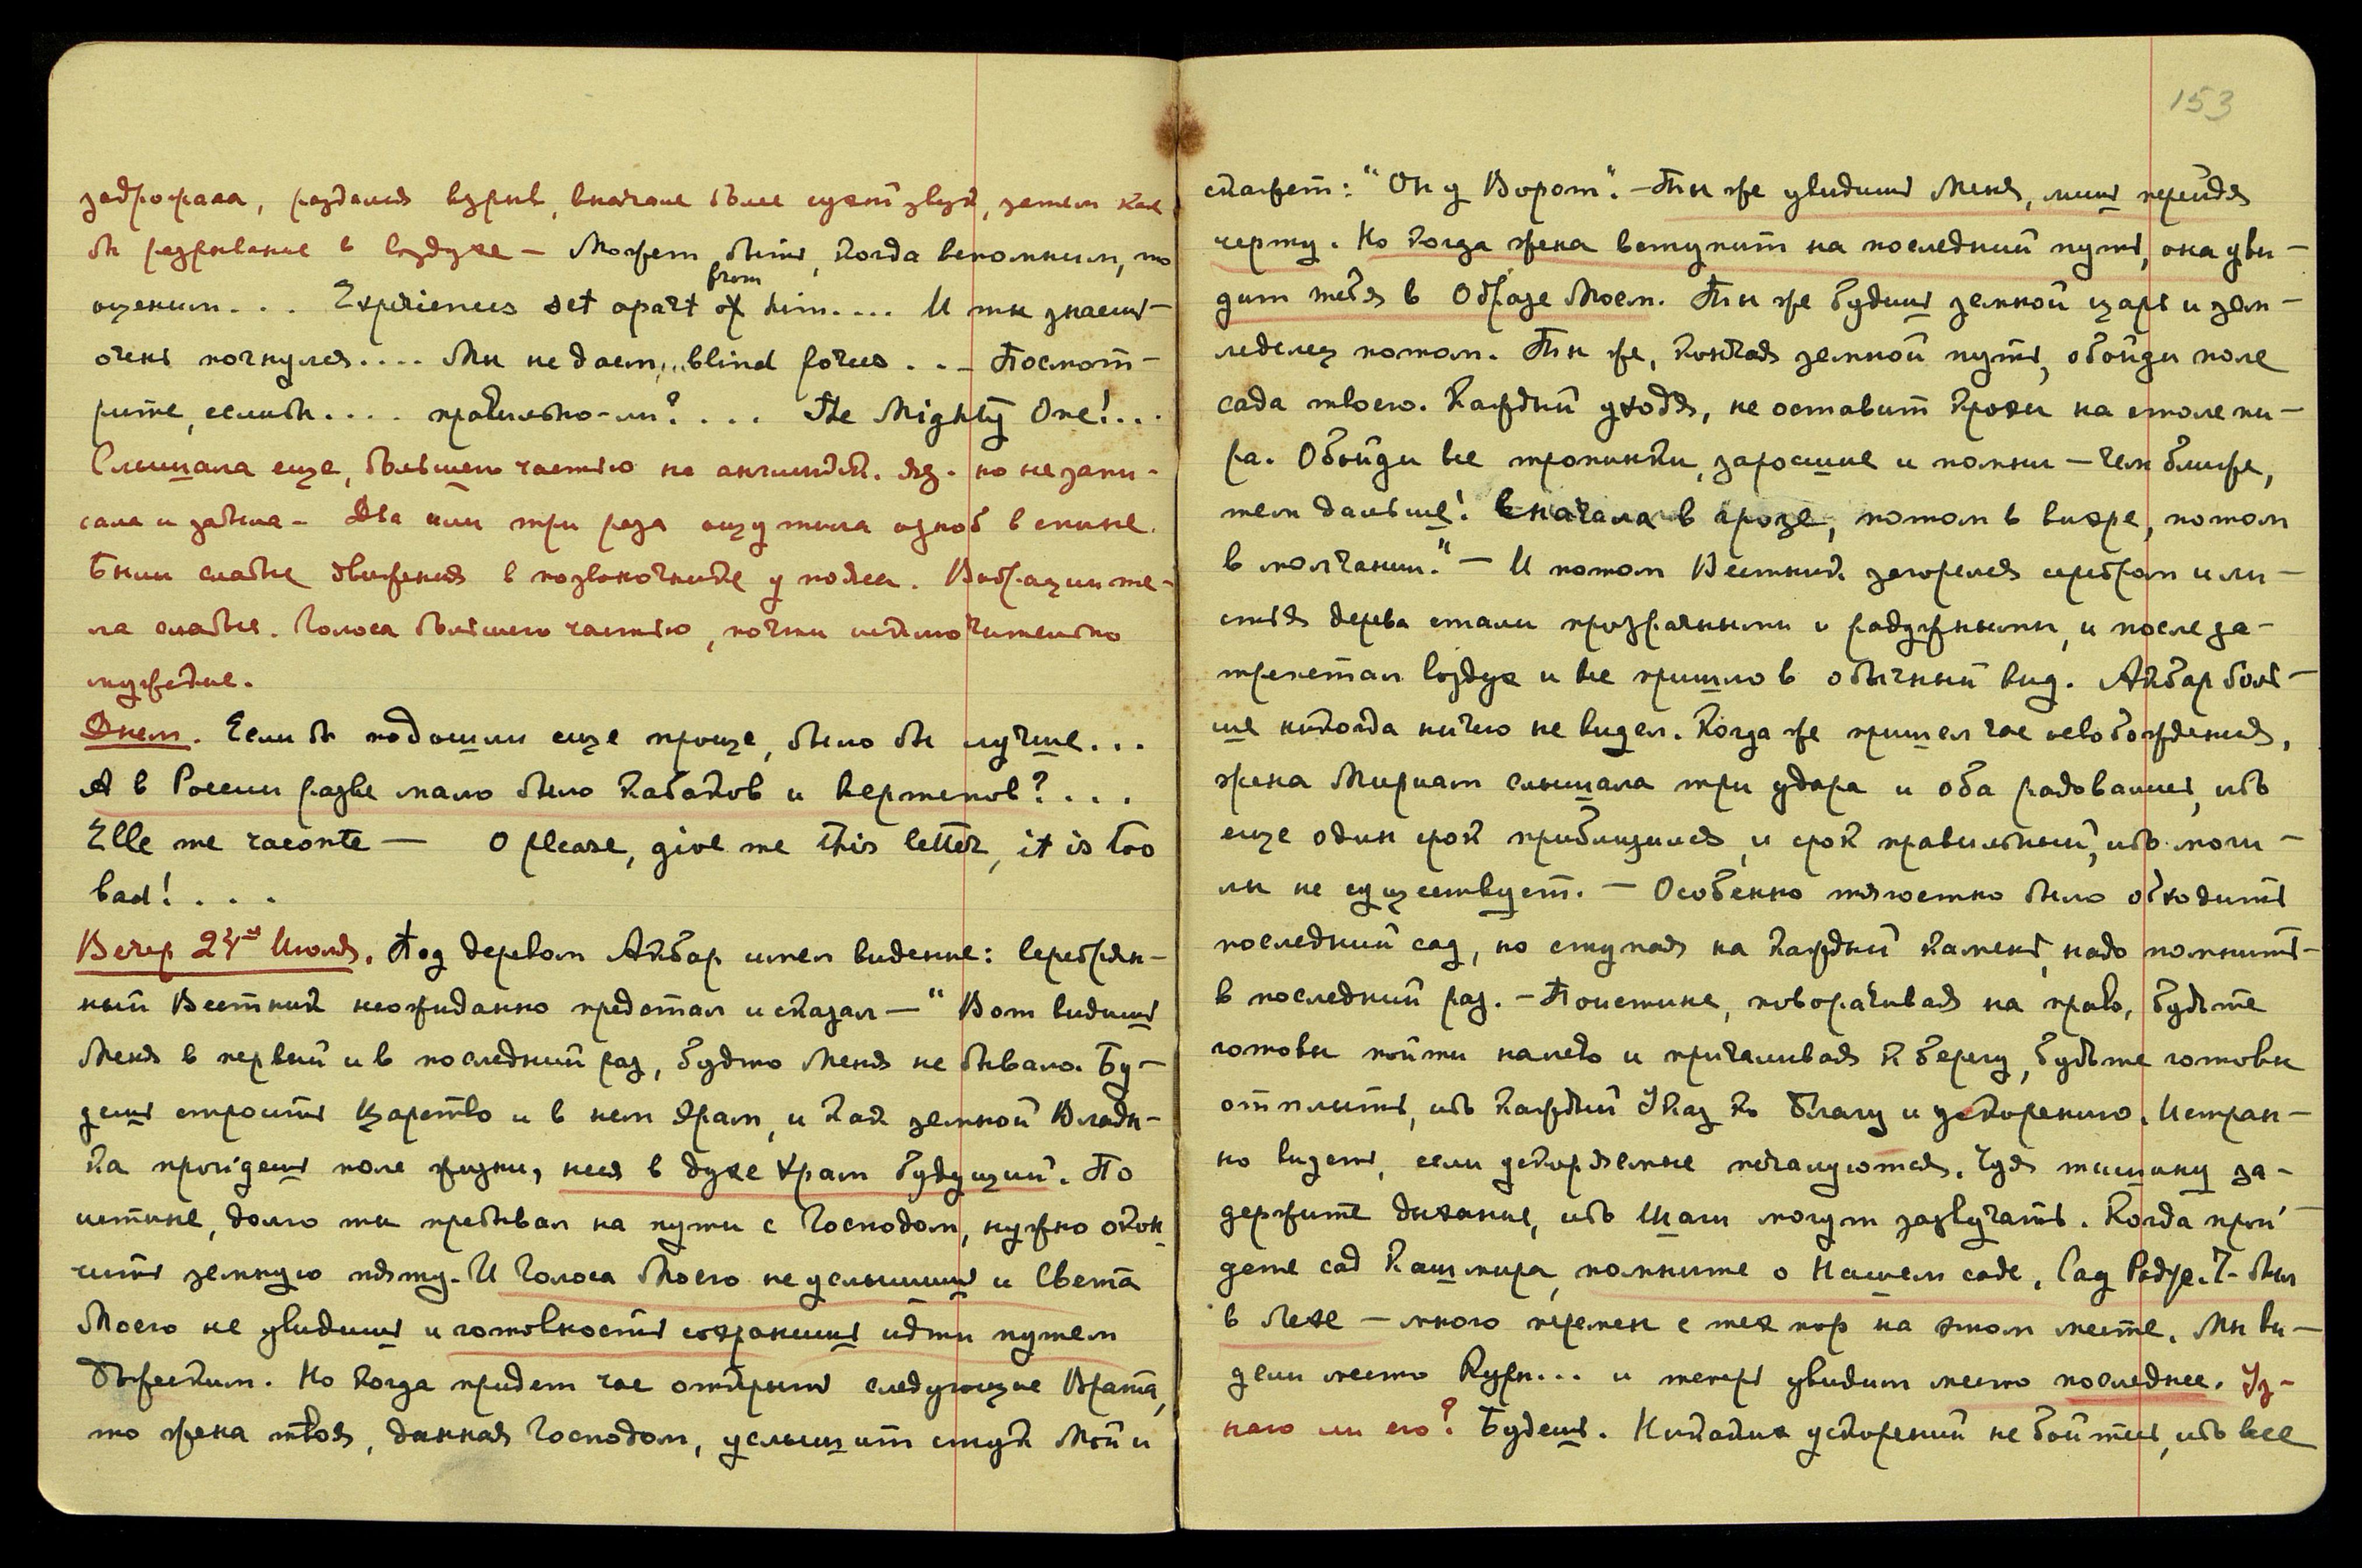 задрожала, раздался взрыв, вначале был сухой звук, затем как
бы разрывание в воздухе — Может быть, когда вспомним, то
from
оценим... Experiences set apart of him.... И ты знаешь—
очень погнулся.... Мы не даем,... blind forces... — Посмот—
рите, еслибы.... правильно-ли?.... The Mighty One!...
Слышала еще, большею частью на английск. яз. но не запи-
сала и забыла — Два или три раза ощутила озноб в спине.
Были слабые движения в позвоночнике у пояса. Вибрации те-
ла слабые. Голоса большею частью, почти исключительно
мужские.
Днем. Если бы подошли еще проще, было бы лучше...
А в России разве мало было кабаков и вертепов?...
Elle me raconte — O please, give me this letter, it is too
bad!....
Вечер 24го Июля. Под деревом Акбар имел видение: Серебрян—
ный Вестник неожиданно предстал и сказал — "Вот видишь
Меня в первый и в последний раз, будто Меня не бывало. Бу—
дешь строить Царство и в нем Храм, и как земной Влады—
ка пройдешь поле жизни, неся в духе Храм будущий. По
истине, долго ты пребывал на пути с Господом, нужно окон
чить земную пяту. И Голоса Моего не услышишь и Света
Моего не увидишь и готовность сохранишь идти путем
Божеским. Но когда придет час открыть следующие Врата,
то жена твоя, данная Господом, услышит стук Мой и
153
скажет: "Он у Ворот". — Ты же увидишь Меня, лишь перейдя
черту. Но когда жена вступит на последний путь, она уви—
дит тебя в Образе Моем. Ты же будишь земной царь и зем—
леделец потом. Ты же, кончая земной путь, обойди поле
сада твоего. Каждый уходя, не оставит крохи на столе пи—
ра. Обойди все тропинки, заросшие и помни — чем ближе,
тем дальше! Вначала в грозе, потом в вихре, потом
в молчании." — И потом Вестник загорелся серебром и ли—
стья дерева стали прозрачными и радужными, и после за—
трепетал воздух и все пришло в обычный вид. Акбар боль—
ше никогда ничего не видел. Когда же пришел час освобождения,
жена Мириам слышала три удара и оба радовались, ибо
еще один срок приблизился, и срок правильный, ибо моги—
лы не существует. — Особенно тягостно было обходить
последний сад, но ступая на каждый камень, надо помнить—
в последний раз. — Поистине, поворачивая на право, будьте
готовы пойти налево и причаливая к берегу, будьте готовы
отплыть, ибо каждый Указ ко благу и ускорению. И стран—
но видеть, если ускоряемые печалуются. Чуя тишину за—
держите дыхание, ибо Шаги могут зазвучать. Когда прой—
дете сад Кашмира, помните о Нашем саде. Сад Радж. Ч. был
в Лехе — много перемен с тех пор на этом месте. Мы ви—
дели место Куры... и теперь увидим место последнее. Уз—
наю ли его? Будешь. Никаких ускорений не бойтесь, ибо все